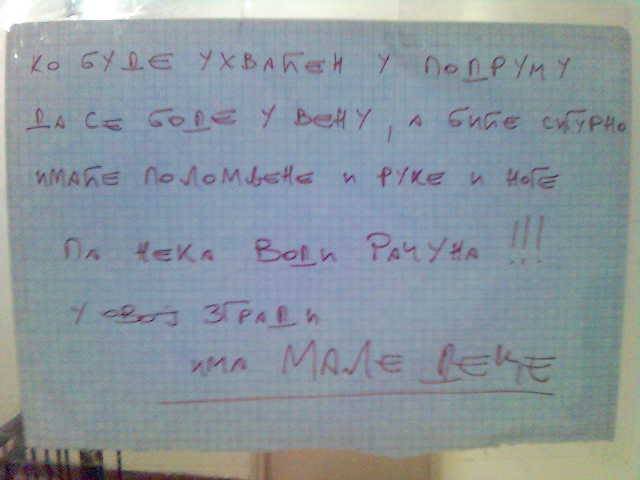 КО БУДЕ УХВАЋЕН У ПОДРУМУ
ДА СЕ БОДЕ У ВЕНУ, А БИЋЕ СИГУРНО
ИМАЋЕ ПОЛОМЉЕНЕ И РУКЕ И НОГЕ
ПА НЕКА ВОДИ РАЧУНА !!!
У ОВОЈ ЗГРАДИ
ИМА МАЛЕ ДЕЦЕ